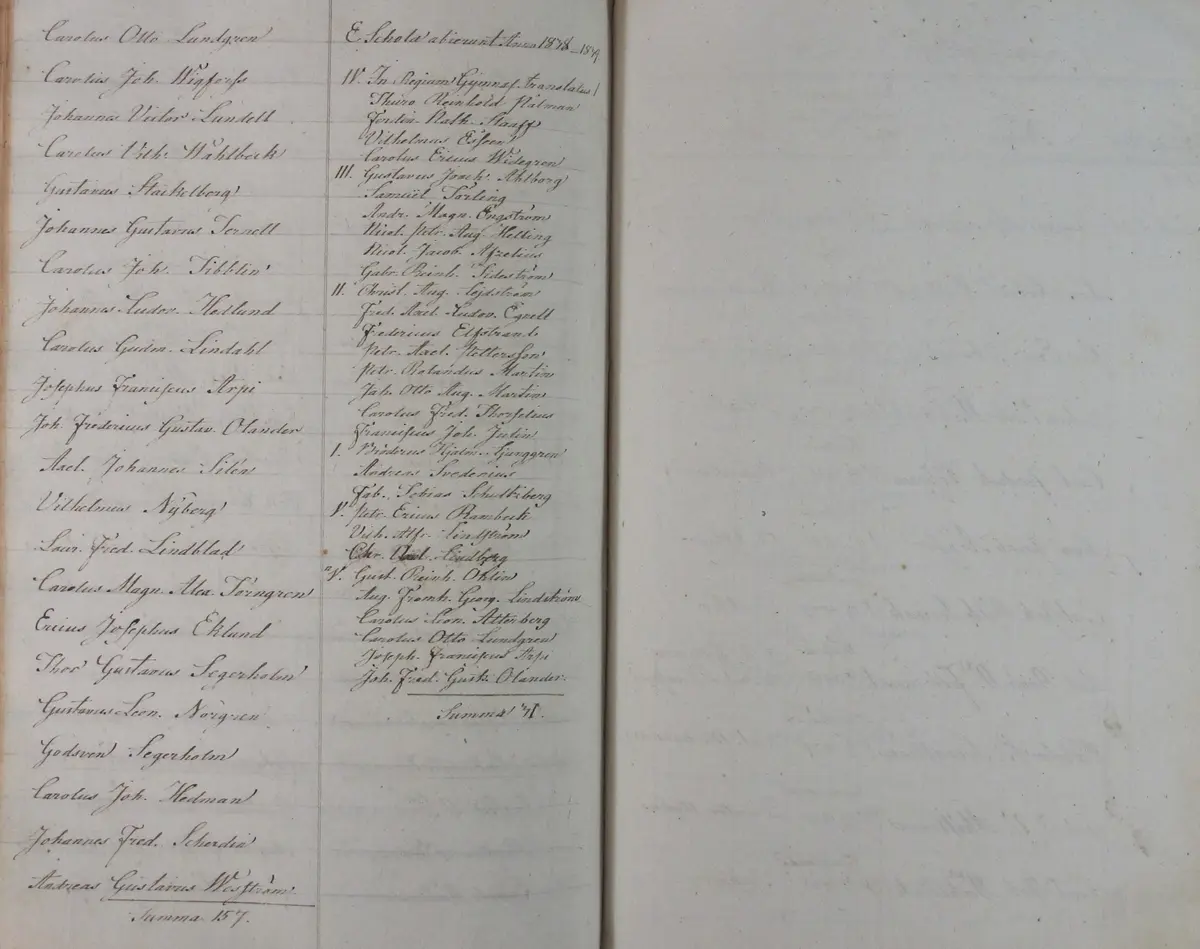 Carolus Otto Lundgren
Carolus Joh. Wigforss
Johannes Victor Lundell
Carolus Vilh. Wahlbeck
Gustavus Stackelberg
Johannes Gustavus Tornell
Carolus Joh. Tibblin
Johannes Ludov. Hedlund
Carolus Gudm. Lindahl
Josephus Franciscus Arpi
Joh. Fredericus Gustav. Olander
Axel. Johannes Silén
Vilhelmus Nyberg
Laur. Fred. Lindblad
Carolus Magn. Alex. Törngren
Ericus Josephus Eklund
Thor Gustavus Segerholm
Gustavus Leon. Norgren
Godsven Segerholm
Carolus Joh. Hedman
Johannes Fred. Scherdin
Andreas Gustavus Wesström
Summa 157.
E Schola abierunt Anno 1878–1879
IV. In Regium Gymnas. translatus
Thure Reinhold
Ferdin. Nath. Staaff
Vilhelmus Essen
Carolus Ericus Widegren
III. Gustavus Joach. Ahlborg
Samuel Torling
Andr. Magn. Engström
Nicol. Petr. Aug. Helling
Nicol. Jacob. Afzelius
Gabr. Reinh. Sideström
II. Christ. Aug. Sojdström
Fred. Axel. Ludov. Egnell
Fredericus Elfstrand
Petr. Axel. Pettersson
Petr. Rolandus Martin
Joh. Otto Aug. Martin
Carolus Fred. Thorselius
Franciscus Joh. Julin
I. Hjalm. Ljunggren
Andreas Svedenius
Fab. Tobias Schultzberg
V. Petr. Ericus Rambeck
Vilh. Alfr. Lindström
Chr. Lindberg
V. Gust. Reinh. Ohlin
Aug. Fromh. Georg. Lindström
Carolus Leon. Atterberg
Carolus Otto Lundgren
Joseph. Franciscus Arpi
Joh. Fred. Gust. Olander.
Summa